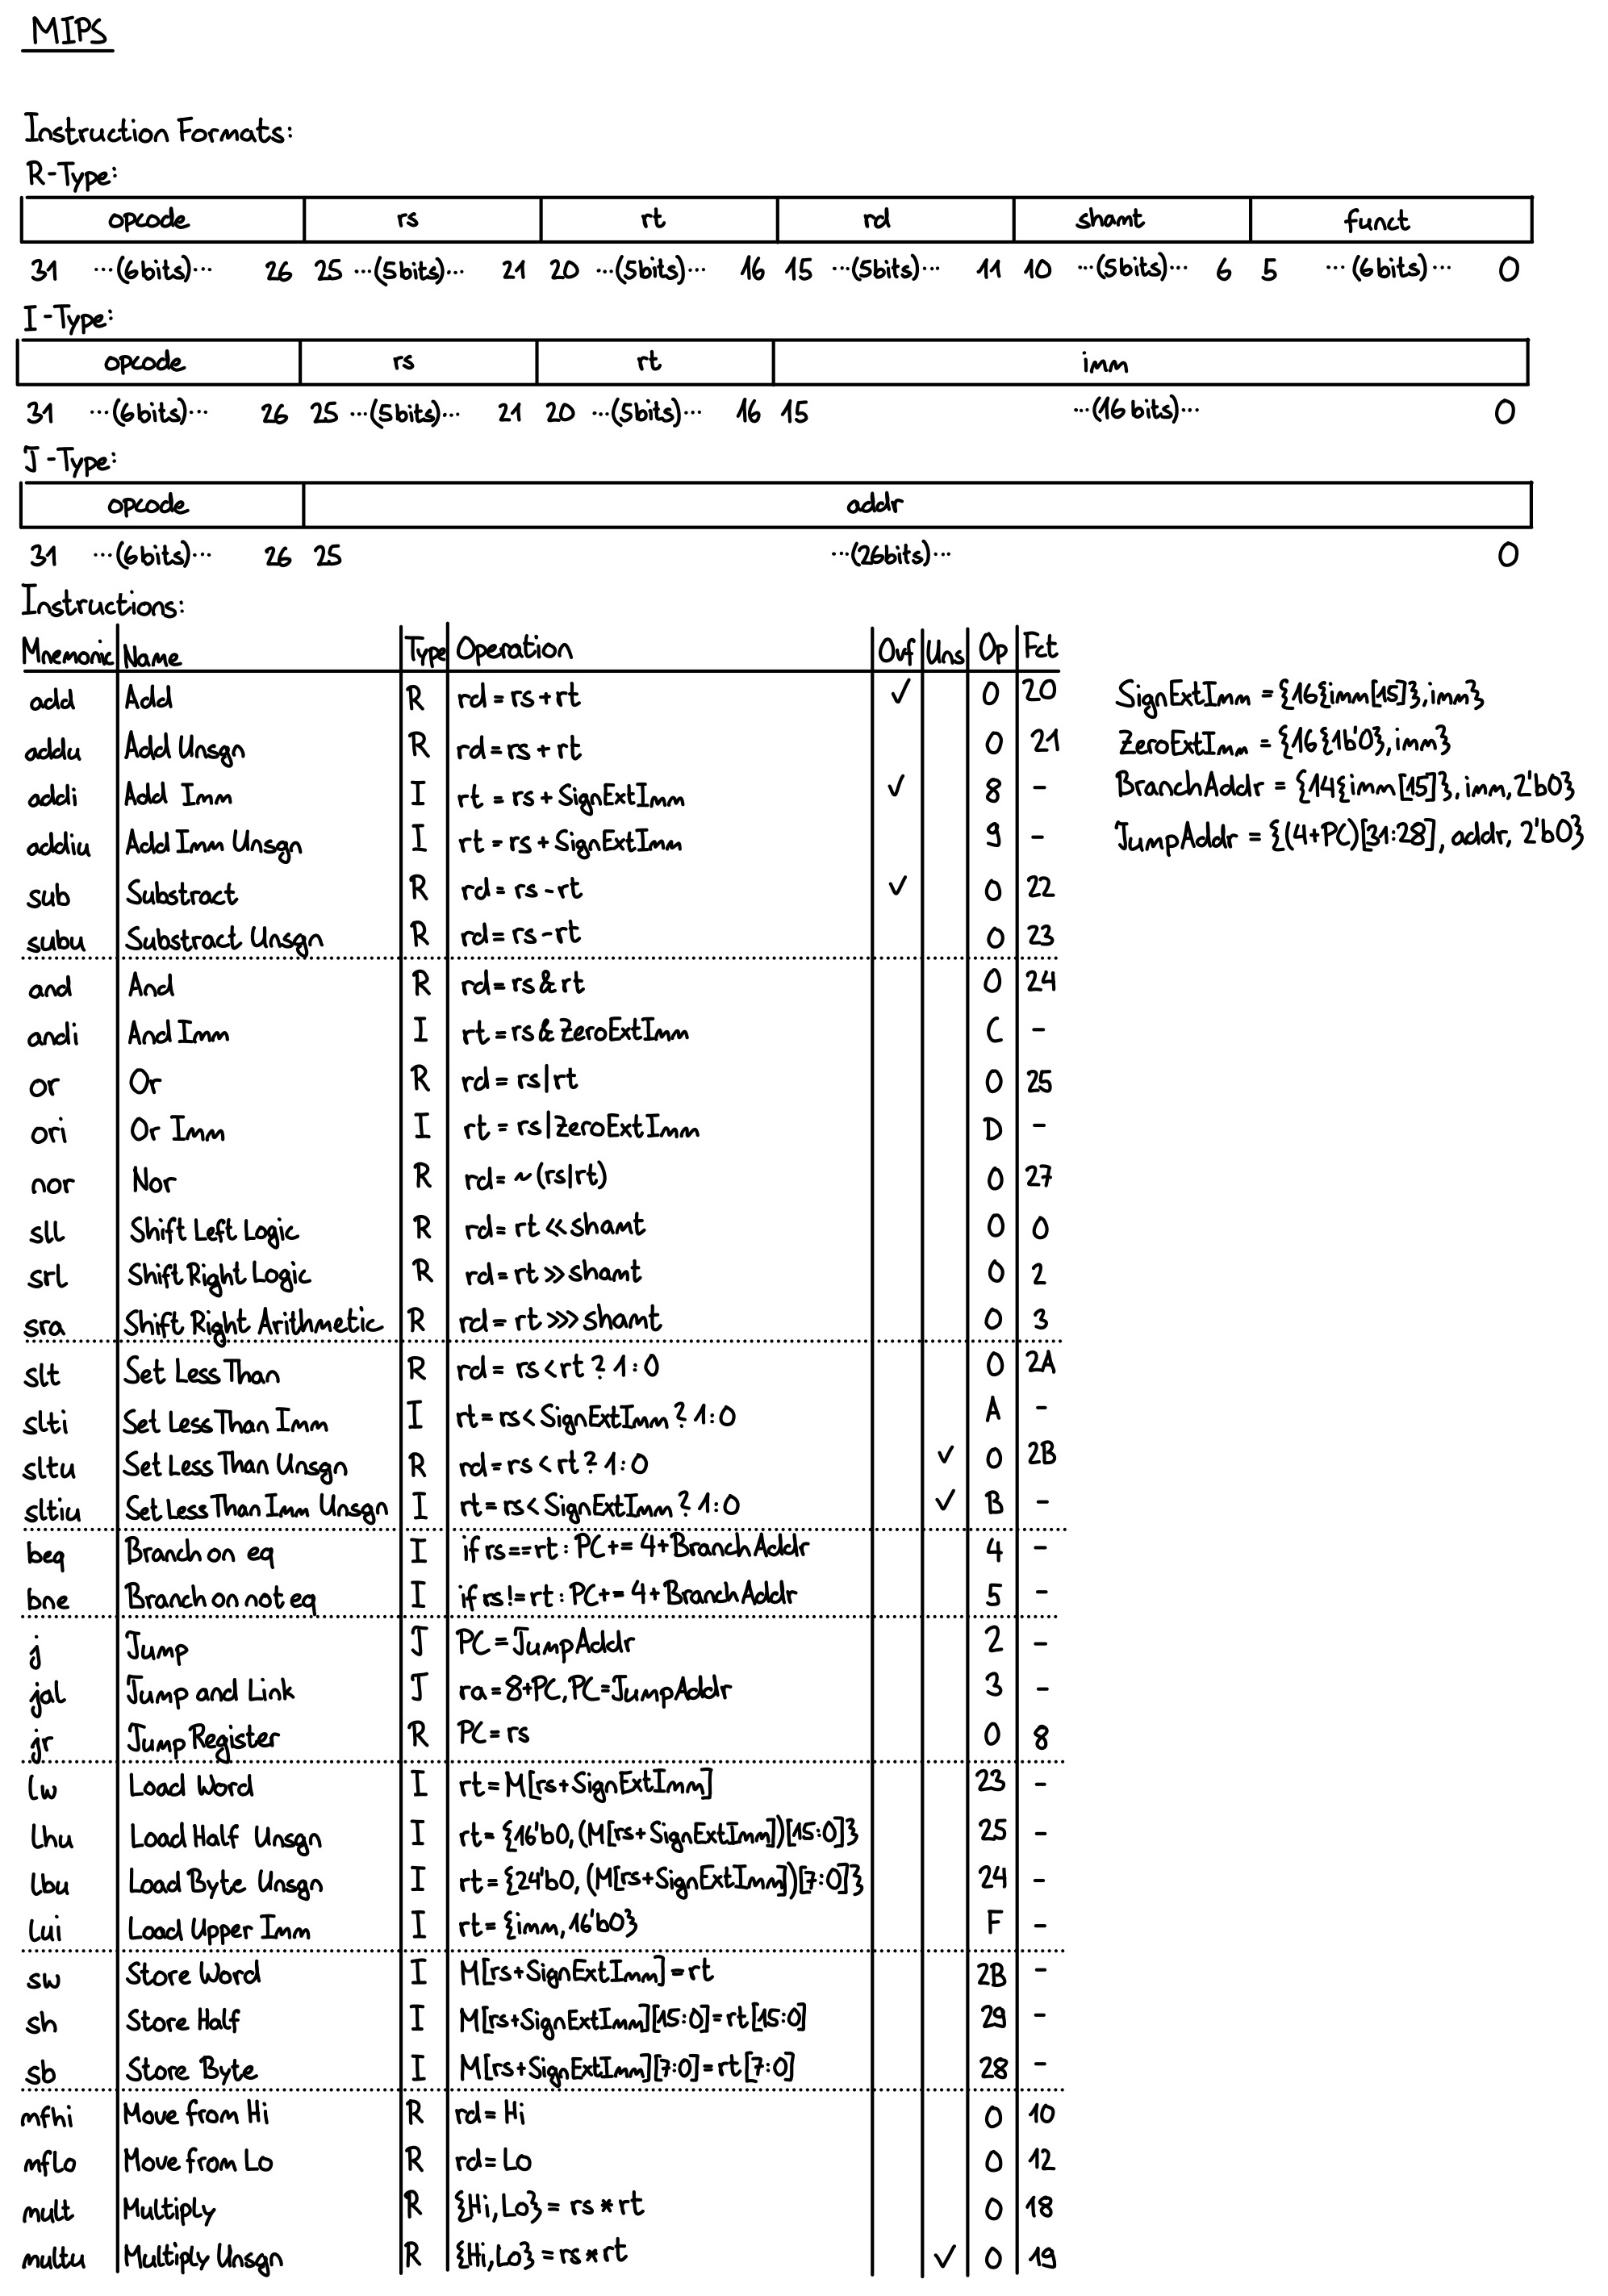 MIPS
Instruction Formats:
R-Type:
opcode rs rt rd shamt funct
31 ...(6bits)... 26 25 ...(5bits)... 21 20 ...(5bits)... 16 15 ...(5bits)... 11 10 ...(5bits)... 6 5 ...(6bits)... 0
I-Type:
opcode rs rt imm
31 ...(6bits)... 26 25 ...(5bits)... 21 20 ...(5bits)... 16 15 ...(16bits)... 0
J-Type:
opcode addr
31 ...(6bits)... 26 25 ...(26bits)... 0
Instructions:
Mnemonic Name Type Operation Ovf Uns Op Fct
add Add R rd=rs+rt ✓ 0 20 SignExtImm = {16{imm[15]},imm}
addu Add Unsgn R rd=rs+rt 0 21 ZeroExtImm = {16{1b'0},imm}
addi Add Imm I rt=rs+SignExtImm ✓ 8 - BranchAddr = {14{imm[15]}, imm, 2'b0}
addiu Add Imm Unsgn I rt=rs+SignExtImm 9 - JumpAddr = {(4+PC)[31:28], addr, 2'b0}
sub Substract R rd=rs-rt ✓ 0 22
subu Substract Unsgn R rd=rs-rt 0 23
and And R rd=rs&rt 0 24
andi And Imm I rt=rs&ZeroExtImm C -
or Or R rd=rs|rt 0 25
ori Or Imm I rt=rs|ZeroExtImm D -
nor Nor R rd=~(rs|rt) 0 27
sll Shift Left Logic R rd=rt<<shamt 0 0
srl Shift Right Logic R rd=rt>>shamt 0 2
sra Shift Right Arithmetic R rd=rt>>>shamt 0 3
slt Set Less Than R rd=rs<rt?1:0 0 2A
slti Set Less Than Imm I rt=rs<SignExtImm?1:0 A -
sltu Set Less Than Unsgn R rd=rs<rt?1:0 ✓ 0 2B
sltiu Set Less Than Imm Unsgn I rt=rs<SignExtImm?1:0 ✓ B -
beq Branch on eq I if rs==rt: PC+=4+BranchAddr 4 -
bne Branch on not eq I if rs!=rt: PC+=4+BranchAddr 5 -
j Jump J PC=JumpAddr 2 -
jal Jump and Link J ra=8+PC, PC=JumpAddr 3 -
jr Jump Register R PC=rs 0 8
lw Load Word I rt=M[rs+SignExtImm] 23 -
lhu Load Half Unsgn I rt={16'b0,(M[rs+SignExtImm])[15:0]} 25 -
lbu Load Byte Unsgn I rt={24'b0,(M[rs+SignExtImm])[7:0]} 24 -
lui Load Upper Imm I rt={imm,16'b0} F -
sw Store Word I M[rs+SignExtImm]=rt 2B -
sh Store Half I M[rs+SignExtImm][15:0]=rt[15:0] 29 -
sb Store Byte I M[rs+SignExtImm][7:0]=rt[7:0] 28 -
mfhi Move from Hi R rd=Hi 0 10
mflo Move from Lo R rd=Lo 0 12
mult Multiply R {Hi,Lo}=rs*rt 0 18
multu Multiply Unsgn R {Hi,Lo}=rs*rt ✓ 0 19